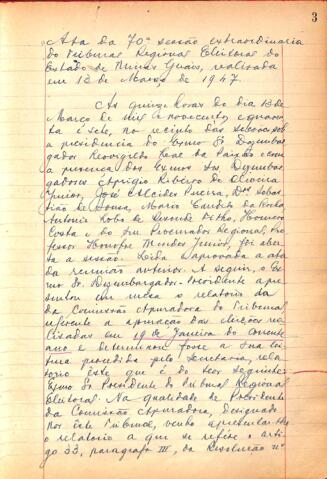 3
Ata da 70ª sessão extraordinaria
do Tribunal Regional Eleitoral do
Estado de Minas Gerais, realizada
em 13 de Março de 1947.
As quinze horas do dia 13 de
Março de mil e novecentos e quaren
ta e sete, no recinto das sessões, sob
a presidencia do Exmo Sr Desembar
gador Leal da Paixão e com
a presença dos Exmos Srs Desembar
gadores Ribeiro de Oliveira
Junior, José Alcides Pereira, Drs Sebas
tião de Sousa, Mario Candido da Rocha,
Antonio Lobo de Resende Filho,
Costa e do Snr Procurador Regional, Pro
fessor Onofre Mendes Junior, foi aber
ta a sessão. Lida e aprovada a ata
da reunião anterior. A seguir, o Ex
mo Sr. Desembargador-Presidente apre
sentou em mesa o relatorio da
da Comissão Apuradora do Tribunal
referente a apuração das eleições rea
lizadas em 19 de Janeiro do corrente
ano e determinou fosse a sua lei
tura procedida pela secretaria, rela
torio êste que é do teor seguinte:
Exmo Sr. Presidente do Tribunal Regional
Eleitoral. Na qualidade de Presidente
da Comissão Apuradora, designado
por êste Tribunal, venho apresentar-lhe
o relatorio a que se refere o arti
go 33, paragrafo III, da Resolução nº